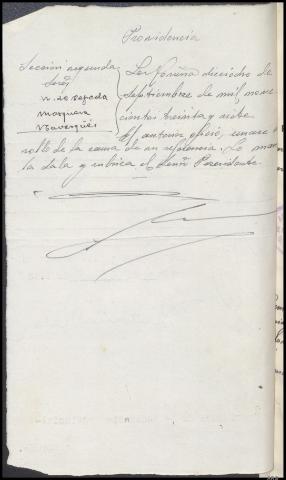 Providencia
Sección segunda
Señs
N. de Cepeda
Mosquera
La Coruña dieciocho de
septiembre de mil nove-
cientos treinta y siete
El anterior oficio, unase al
rollo de la causa de su referencia. Lo man
la Sala y rubrica el Señor Presidente.